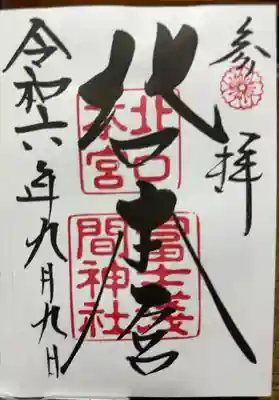 参拝
北口本宮
北口
本宮
冨士淺
間神社
令和六年九月九日